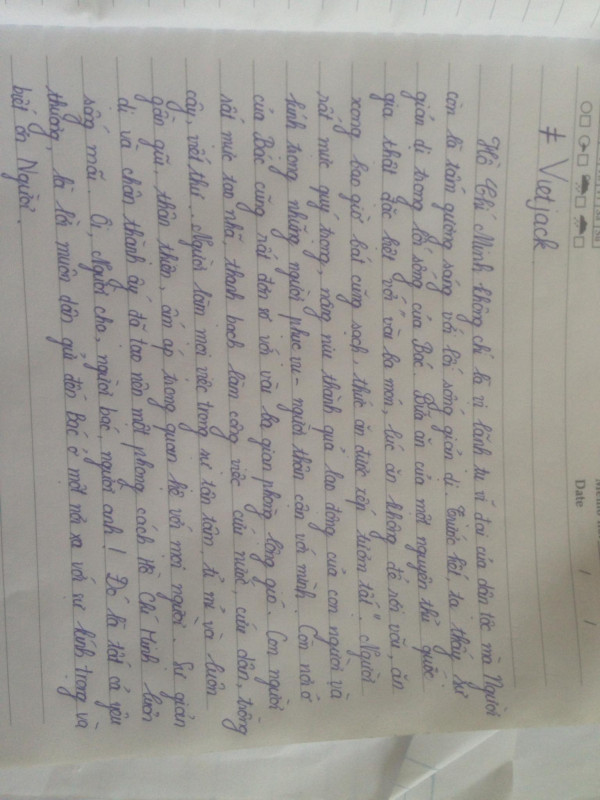 Date / /
≠ Vietjack
Hồ Chí Minh không chỉ là vị lãnh tụ vĩ đại của dân tộc mà Người
còn là tấm gương sáng với lối sống giản dị. Trước hết, ta thấy sự
giản dị trong lối sống của Bác. Bữa ăn của một nguyên thủ quốc
gia thật đặc biệt với vài ba món, lúc ăn không để rơi vãi, ăn
xong bao giờ bát cũng sạch, thức ăn được xếp tươm tất. Người
rất mực quý trọng, nâng niu thành quả lao động của con người và
kính trọng những người phục vụ - người thân cận với mình. Còn nơi ở
của Bác cũng rất đơn sơ với vài ba gian phòng lộng gió. Con người
rất mực tao nhã, thanh bạch làm công việc cứu nước, cứu dân, trồng
cây, viết thư... Người làm mọi việc trong sự tận tâm, tỉ mỉ và luôn
gần gũi, thân thiện, ấm áp trong quan hệ với mọi người. Sự giản
dị và chân thành ấy đã tạo nên một phong cách Hồ Chí Minh luôn
sống mãi. Ôi, Người cha, người bác, người anh! Đó là tất cả yêu
thương, là lời muôn dân gửi đến Bác ở một nơi xa với sự kính trọng và
biết ơn Người.